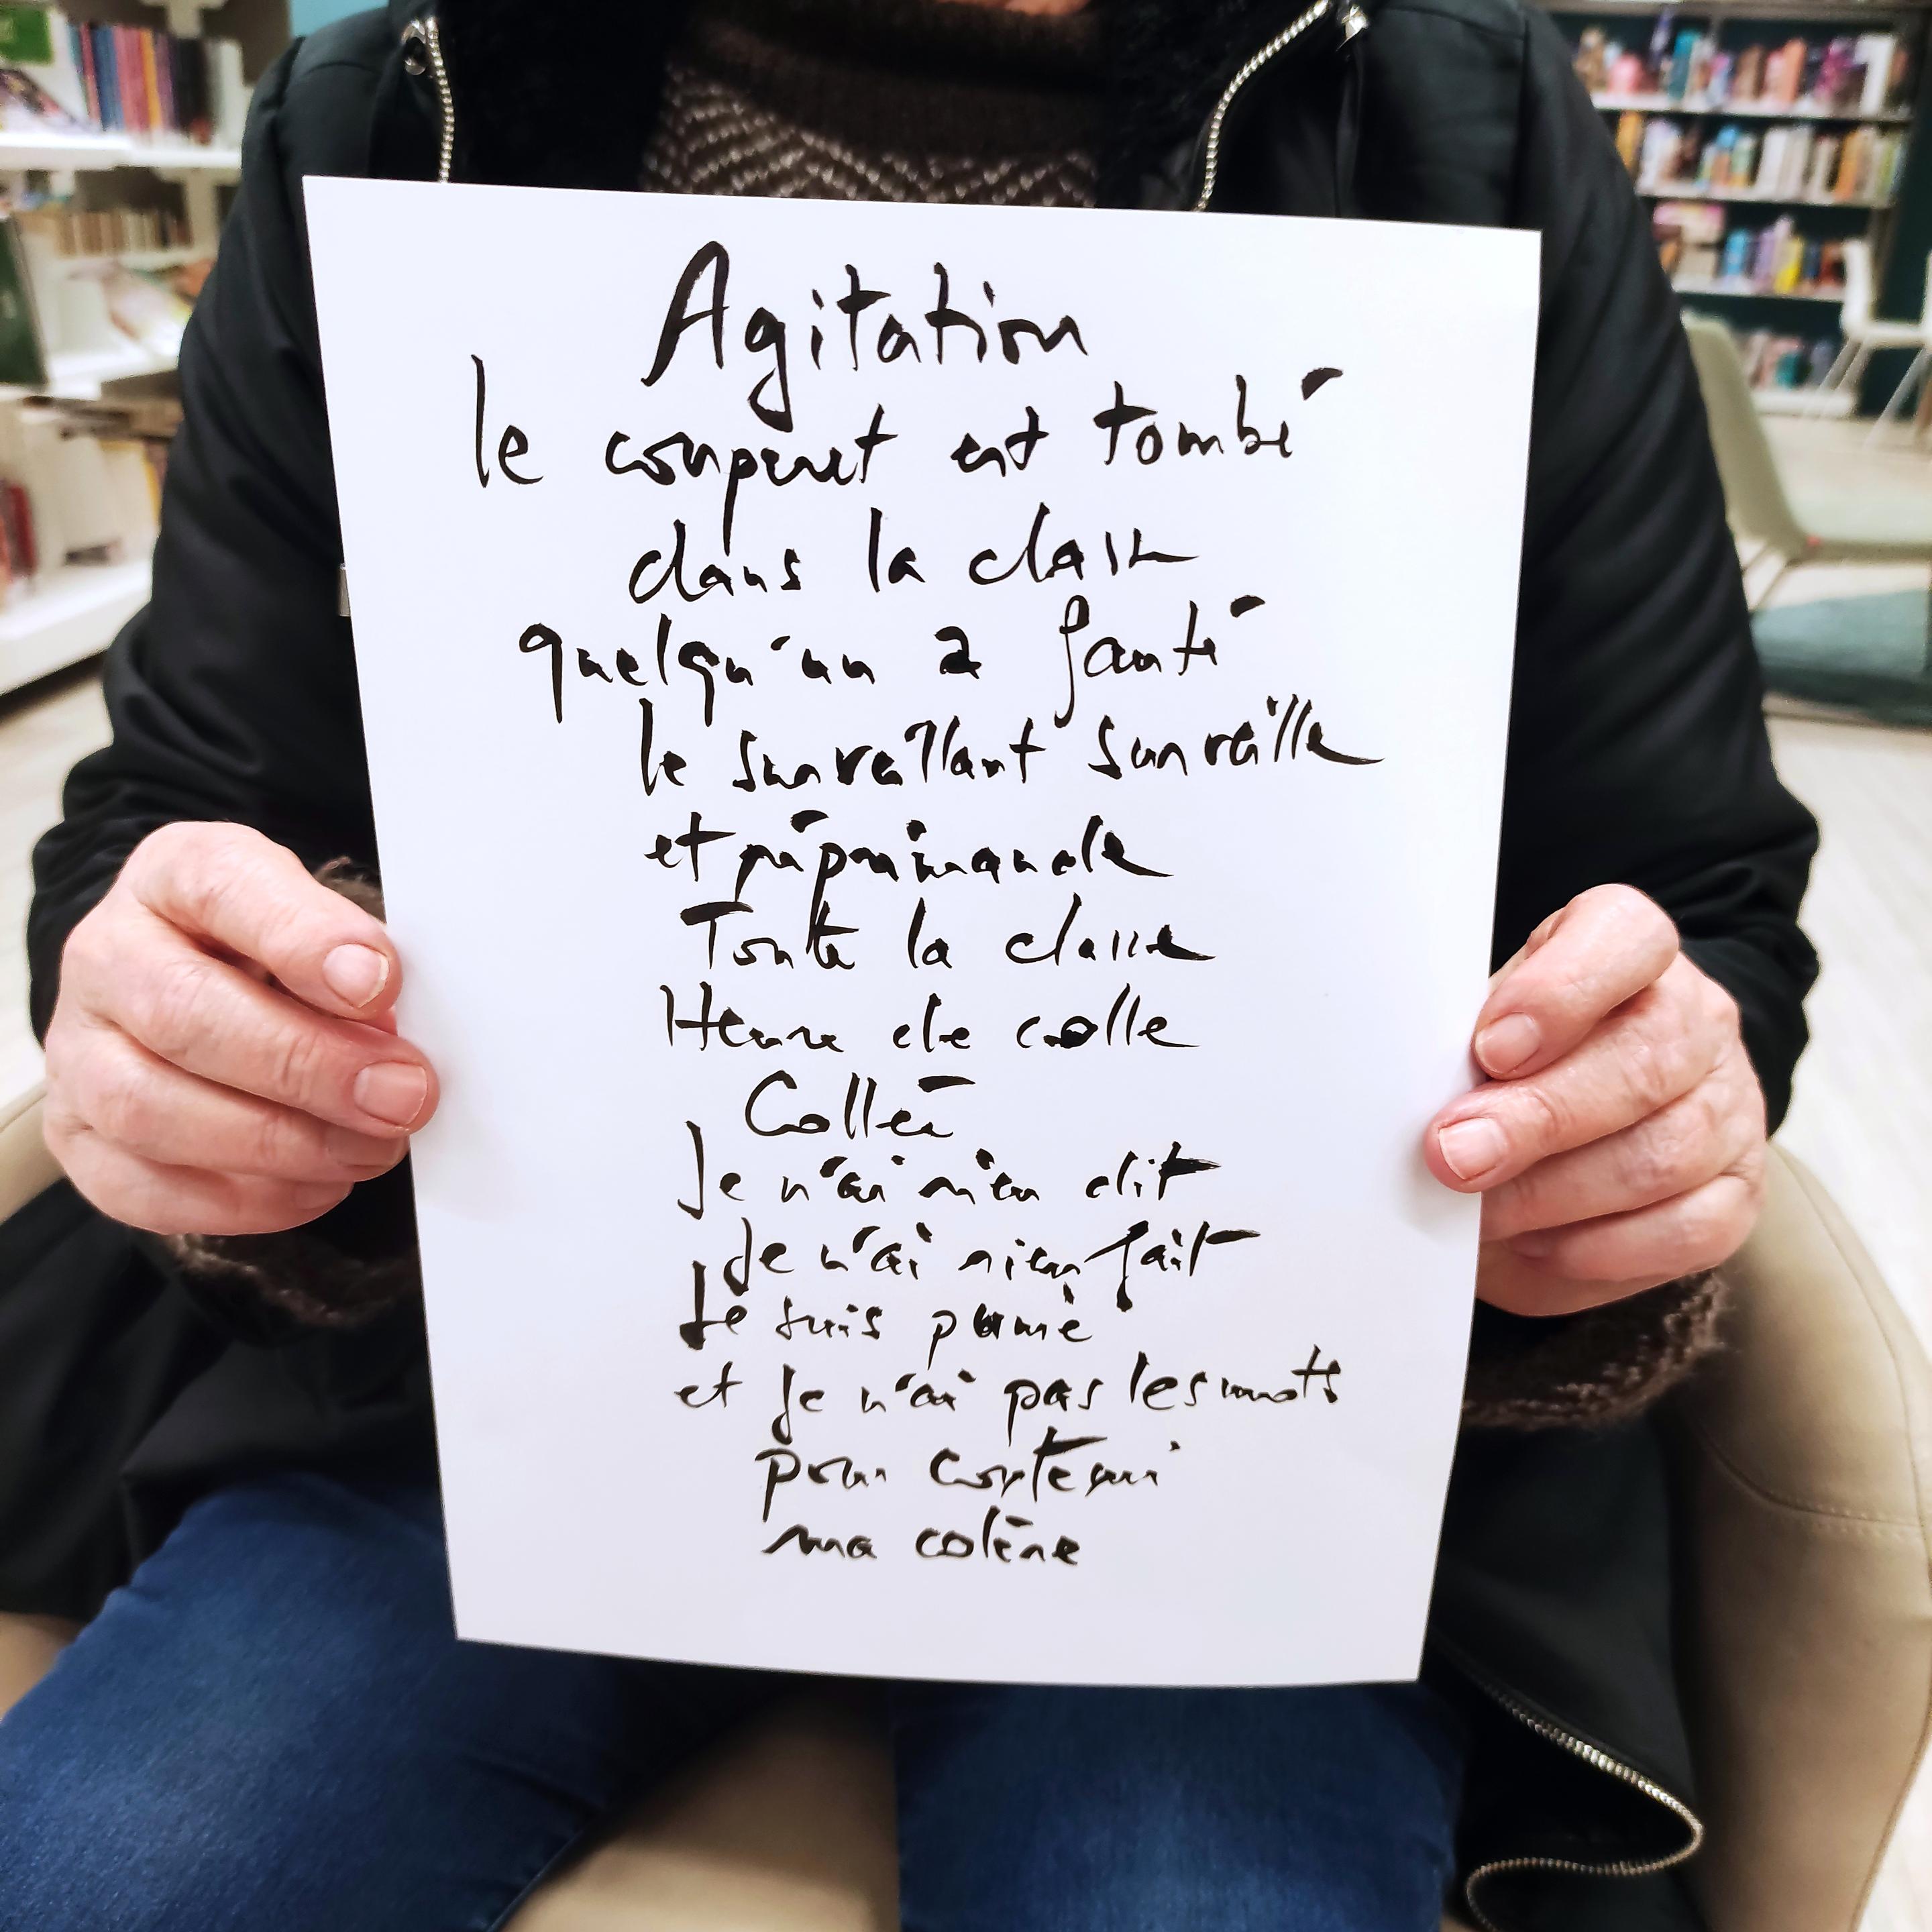 Agitation
le couperet est tombé
dans la classe
quelqu'un a fauté
le surveillant surveille
et réprimande
Toute la classe
Heure de colle
Collée
Je n'ai rien dit
Je n'ai rien fait
Je suis punie
et je n'ai pas les mots
pour contenir
ma colère